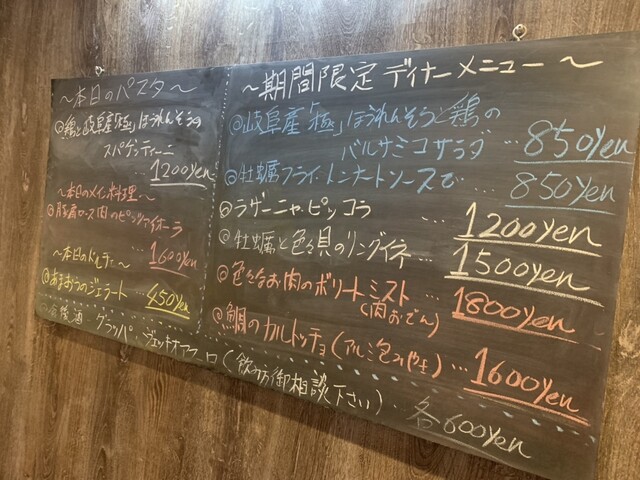 ~本日のパスタ~
◎鶏と岐阜産「極」ほうれんそうの
スパゲッティーニ
1200yen
~本日のメイン料理~
◎豚肩ロース肉のピッツァイオーラ
1600yen
~本日のドルチェ~
◎あまおうのジェラート… 450yen
~期間限定ディナーメニュー~
◎岐阜産「極」ほうれんそうと鶏の
バルサミコサラダ … 850yen
◎牡蠣フライ トンナートソースで … 850yen
◎ラザーニャ・ピッコラ … 1200yen
◎牡蠣と色々貝のリングイネ … 1500yen
◎色々なお肉のボリートミスト … 1800yen
(肉おでん)
◎鯛のカルトッチョ(アルミ包みやき) … 1600yen
食後酒 グラッパ・ (飲み方御相談下さい) 各600yen